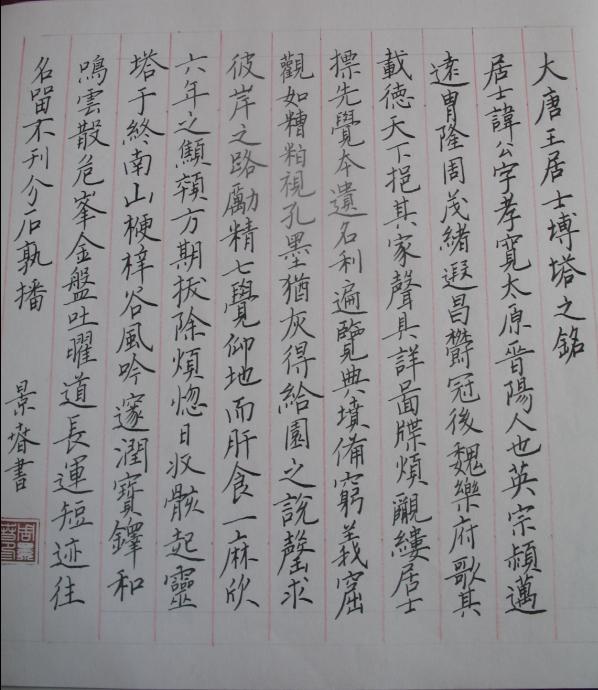 大唐王居士塼塔之銘
居士諱公字孝寬太原晉陽人也英宗穎邁
遠冑隆周茂緒遐昌欝冠後魏樂府歌其
載德天下挹其家聲具詳圖牒煩覼縷居士
摽先覺本遺名利遍覽典墳備窮義窟
觀如糟粕視孔墨猶灰得給園之說罄求
彼岸之路勵精七覺仰地而肝食一麻欣
六年之顯顇方期拔除煩惚日収骸起靈
塔于終南山楩梓谷風吟邃潤寶鐸和
鳴雲散危峯金盤吐曜道長運短迹往
名留不刊介石孰播
景堾書